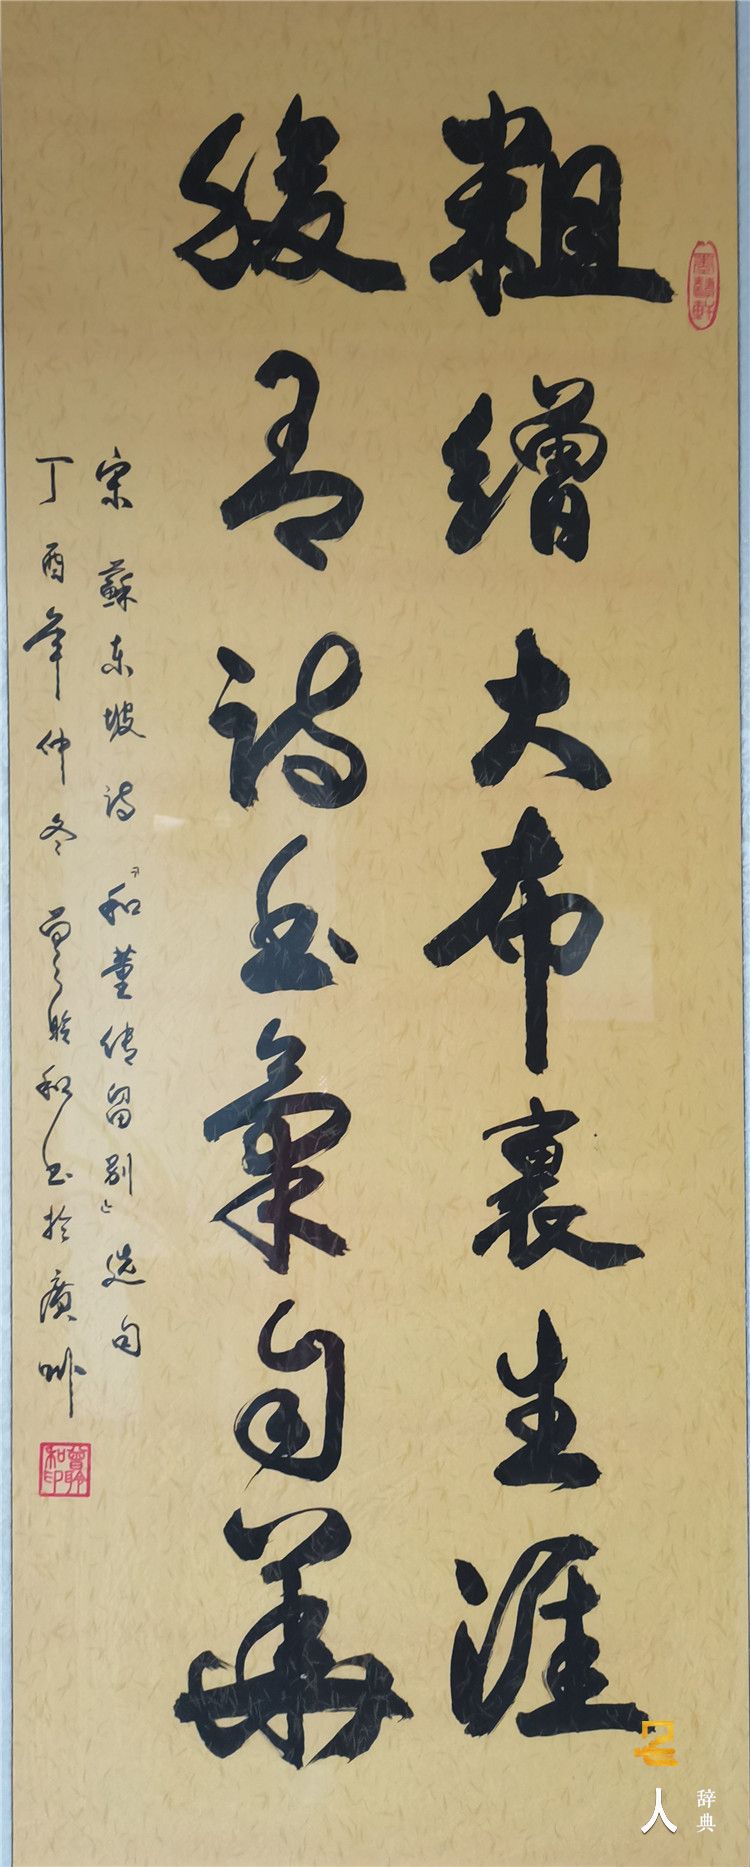 粗繒大布裹生涯
腹有詩書氣自華
宋蘇東坡詩『和董傳留別』選句
丁酉年仲冬曾聆和書於廣州
曾聆和印
名人辞典